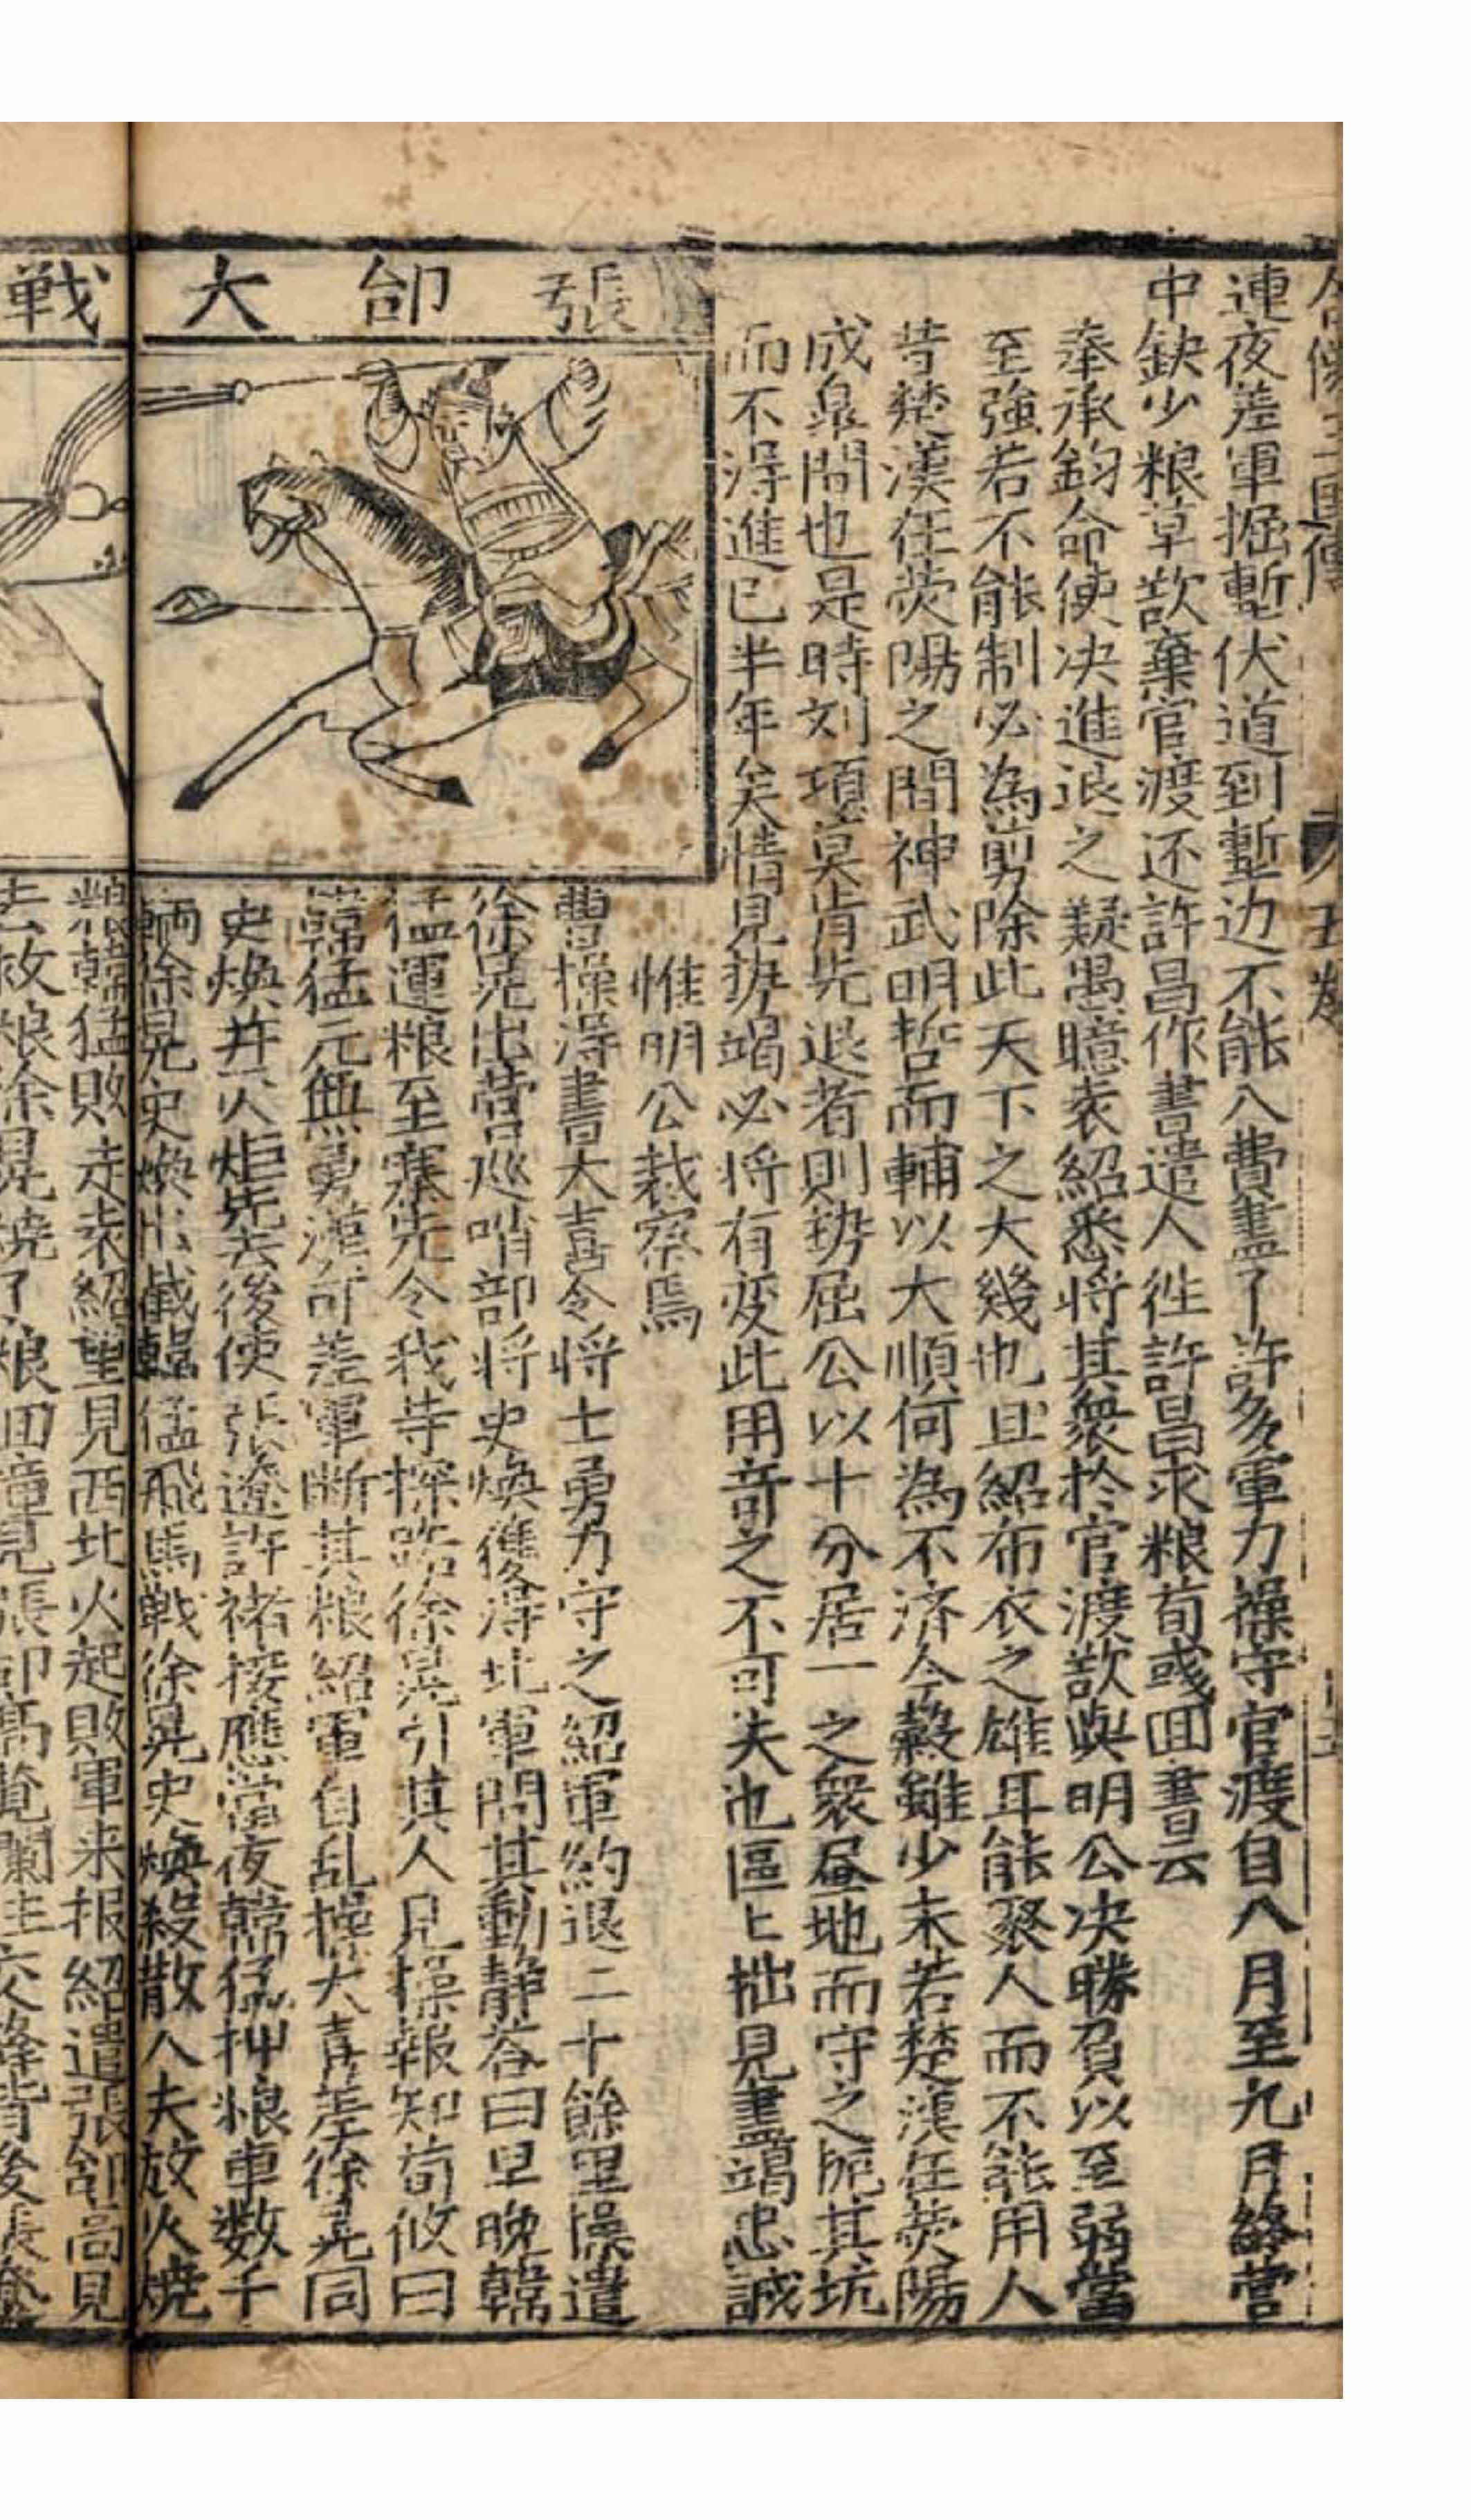 五卷
連夜差軍掘塹伏道到塹边不能入費盡了許多軍力操守官渡自八月至九月終営
中缺少粮草欲棄官渡还許昌作書遣人徃許昌求粮荀彧囬書云
奉承鈞命使决進退之疑愚臆袁紹悉将其衆扵官渡欲與明公决勝負以至弱當
至強若不能制必為剪除此天下之大幾也且紹布衣之雄耳能聚人而不能用人
昔楚漢在荧陽之間神武明哲而輔以大順何為不済今穀雖少未若楚漢在荧陽
成皐間也是時刘項莫肯先退者則势屈公以十分居一之衆昼地而守之扼其坑
而不得進已半年矣情見势竭必将有变此用竒之不可失也區〻拙見盡竭忠誠
惟明公裁察焉
張郃大戦
曹操得書大喜令将士勇力守之紹軍約退二十餘里操遣
徐晃出营巡哨部将史煥獲得北軍問其動静荅曰早晚韓
猛運粮至寨先令我等探路徐晃引其人見操報知荀攸曰
韓猛元無勇漢可差軍断其粮紹軍自乱操大喜差徐晃同
史煥并火炬先去後使張遼許褚接應當夜韓猛押粮車数千
輌徐晃史煥出截韓猛飛馬戦徐晃史煥殺散人夫放火燒
粮韓猛敗走袁紹望見西北火起敗軍来报紹遣張郃高見
去救粮徐晃燒了粮囬撞見張郃高覧攔住交鋒背後張遼